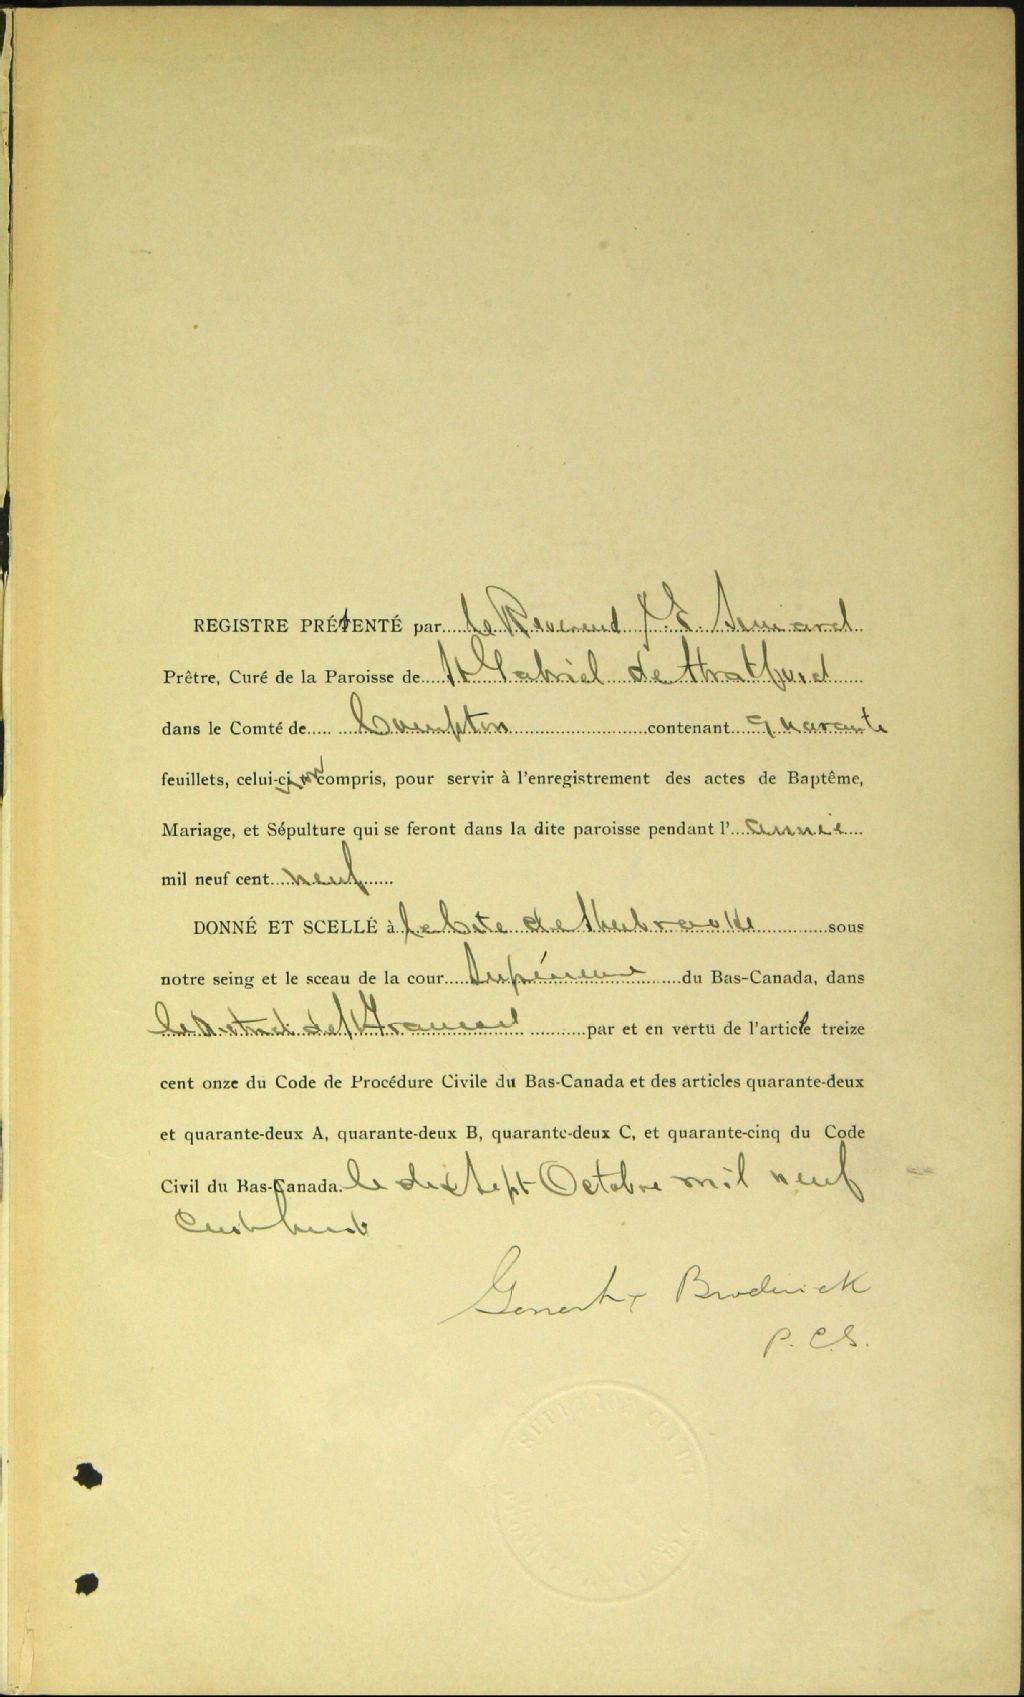 REGISTRE PRÉSENTÉ par le Reverend J. E. Simard
Prêtre, Curé de la Paroisse de St Gabriel de Stratford
dans le Comté de Compton contenant quarante
feuillets, celui-ci non compris, pour servir à l'enregistrement des actes de Baptême,
Mariage, et Sépulture qui se feront dans la dite paroisse pendant l'année
mil neuf cent neuf
DONNÉ ET SCELLÉ à la Cité de Sherbrooke sous
notre seing et le sceau de la cour Supérieure du Bas-Canada, dans
le District de St François par et en vertu de l'article treize
cent onze du Code de Procédure Civile du Bas-Canada et des articles quarante-deux
et quarante-deux A, quarante-deux B, quarante-deux C, et quarante-cinq du Code
Civil du Bas-Canada. le dix Sept Octobre mil neuf
cent huit
Broderick
P. C. S.
SUPERIOR COURT